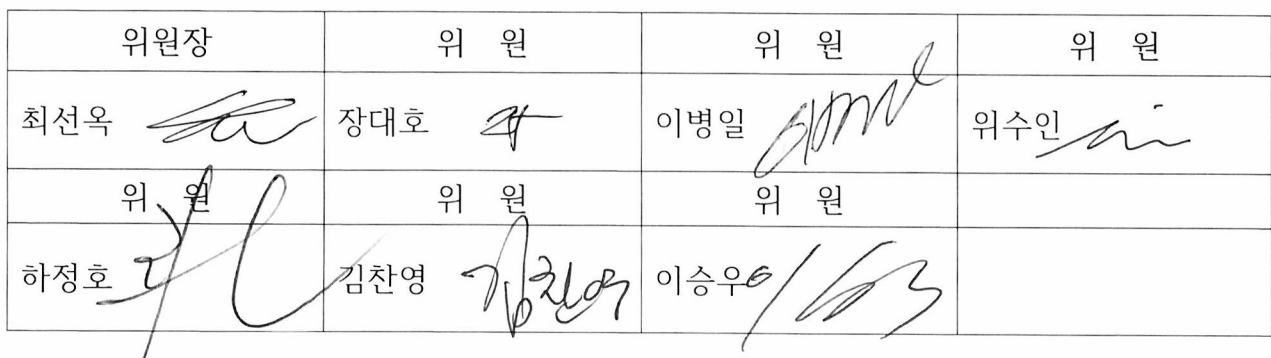 위원장 위 원 위 원 위 원
최선옥 장대호 이병일 위수인
위 원 위 원 위 원
하정호 김찬영 김찬영 이승우